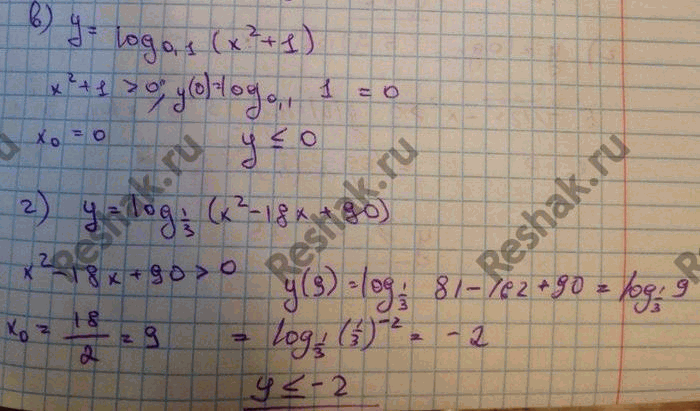 в) y = log₀,₁ (x² + 1)
x² + 1 > 0; y(0) = log₀,₁ 1 = 0
x₀ = 0 y ≤ 0
г) y = log_{1/3} (x² - 18x + 90)
x² - 18x + 90 > 0
y(9) = log_{1/3} 81 - 162 + 90 = log_{1/3} 9
x₀ = 18/2 = 9 = log_{1/3} (1/3)⁻² = -2
y ≤ -2
Reshak.ru
Reshak.ru
Reshak.ru